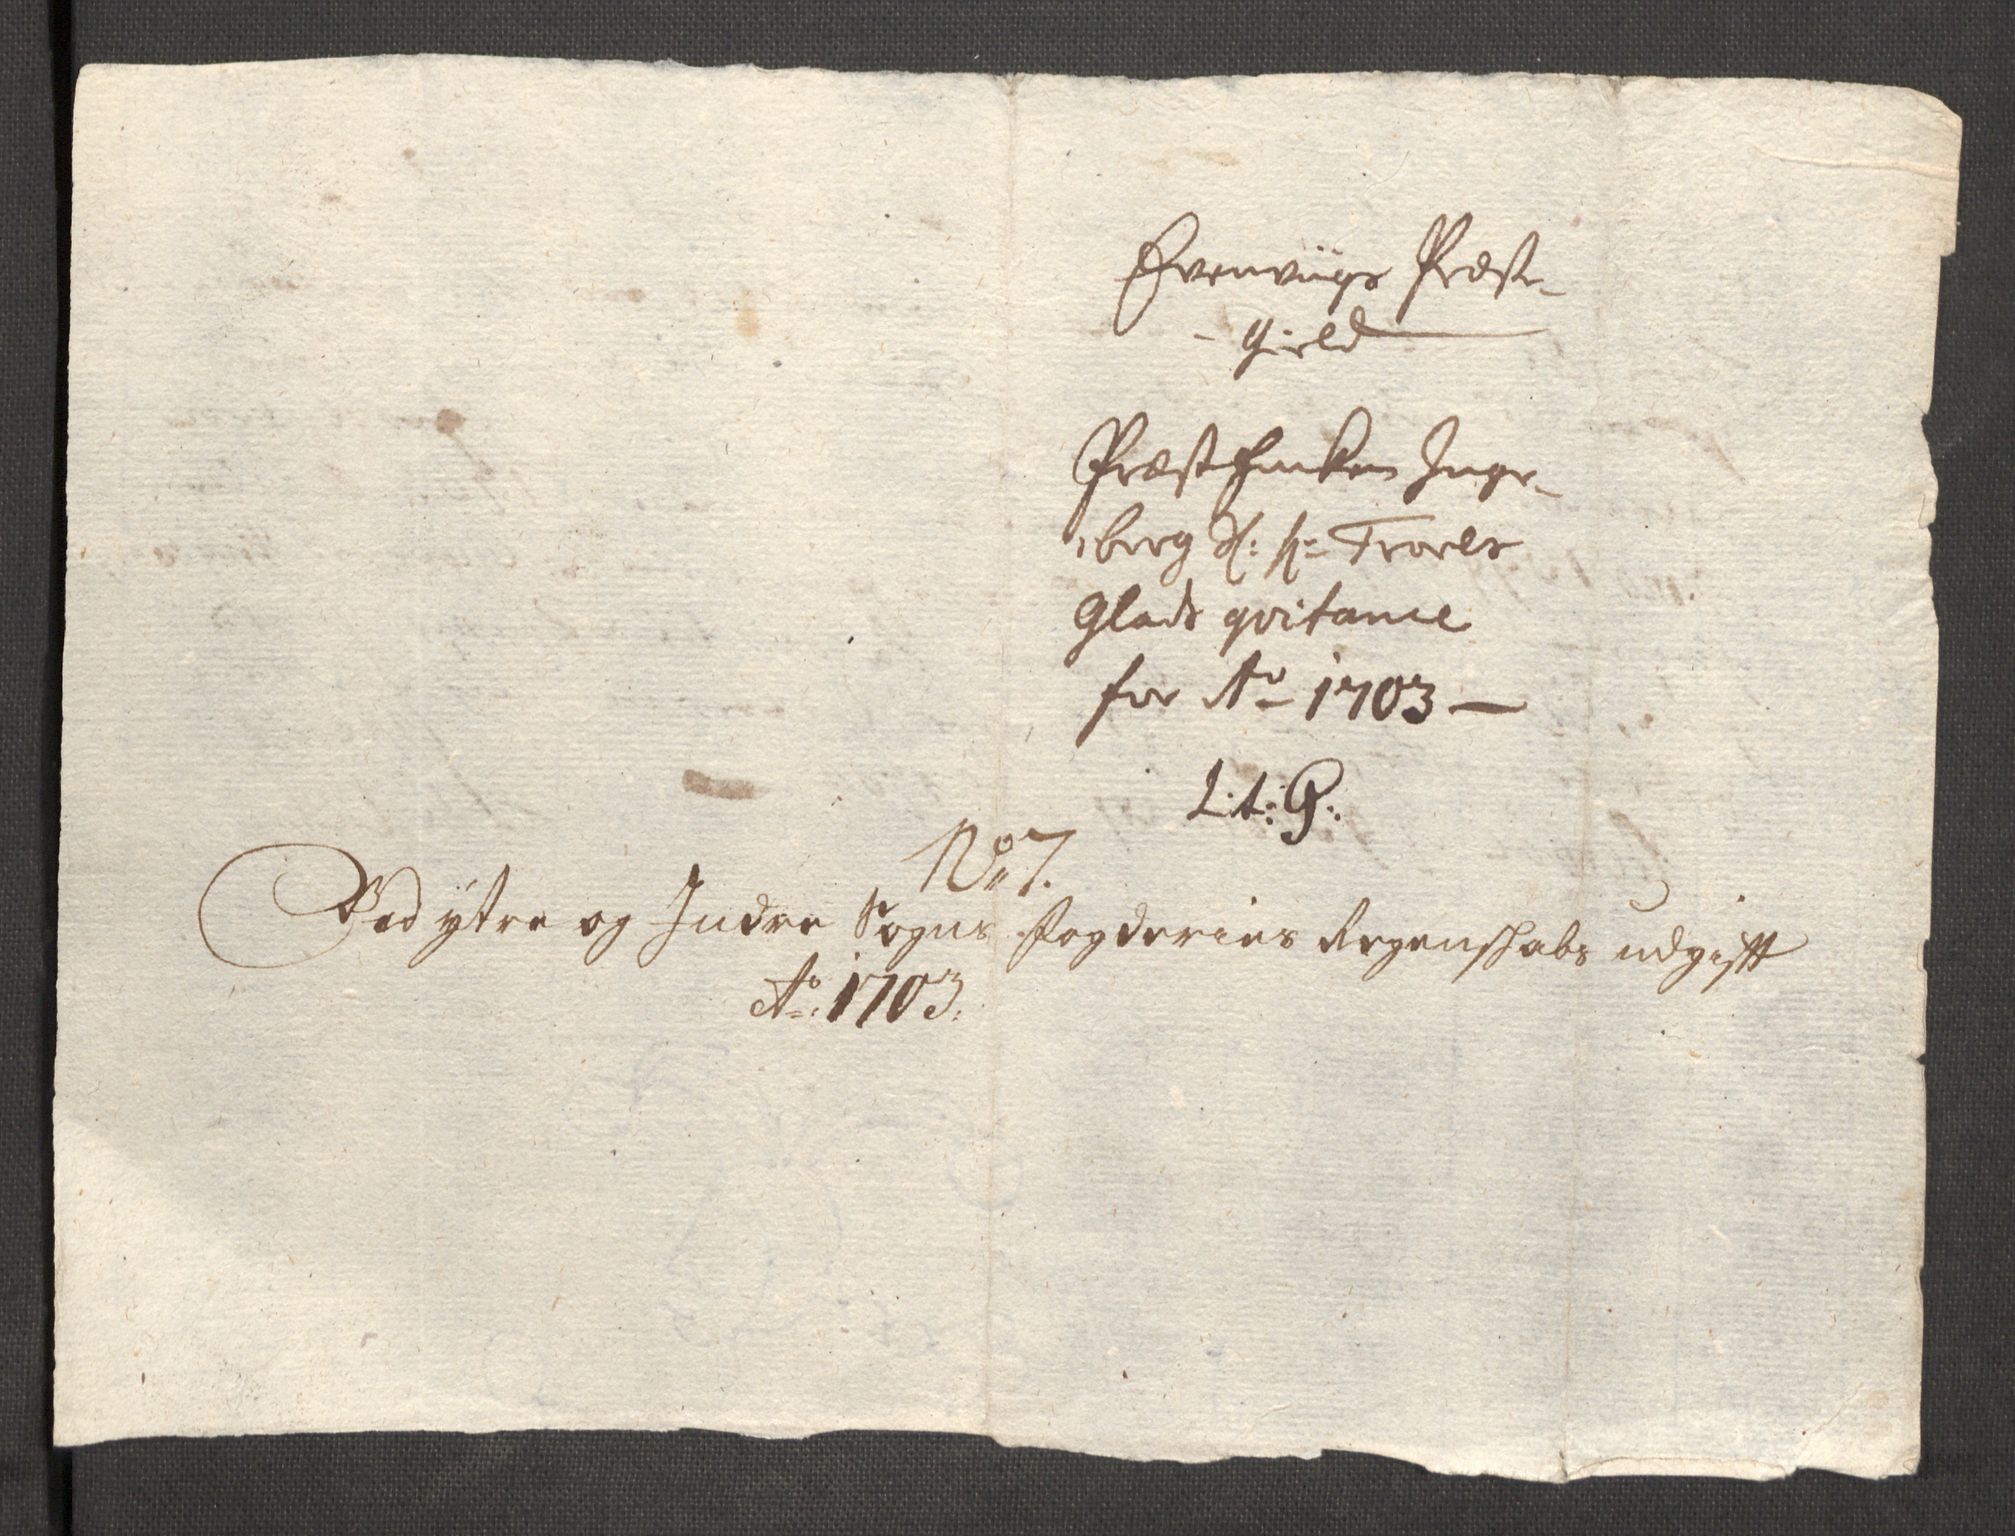 Evenviigs Præste-
- gield
Præst Enken Inge-
berg Sl: Hr Troels
Glads qvitance
for Ao 1703 —
Lit: G:
No 7.
Ved ytre og Indre Sogns fogderies Regenschabs udgifft
Ao: 1703.